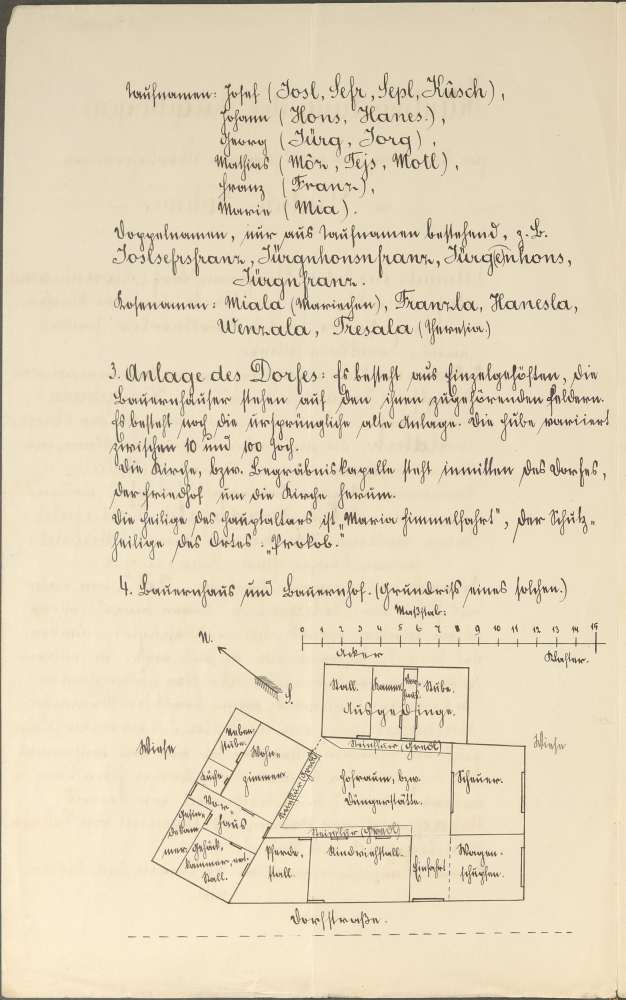 Taufnamen: Josef (Josl, Sefr, Sepl, Küsch),
Johann (Hons, Hanes.),
Georg (Jürg, Jorg),
Mathias (Môz, Tejs, Motl),
Franz (Franz),
Marie (Mia).
Doppelnamen, nur aus Taufnamen bestehend, z. B.
Joslsefrsfranz, Jürgnhonsnfranz, Jürg(e)nhons,
Jürgnfranz.
Kosenamen: Miala (Mariechen), Franzla, Hanesla,
Wenzala, Tresala (Theresia.)
3. Anlage des Dorfes: Es besteht aus Einzelgehöften, die
Bauernhäuser stehen auf den ihnen zugehörenden Feldern.
Es besteht noch die ursprüngliche alte Anlage. Die Hube variiert
zwischen 10 und 100 Joch.
Die Kirche, bzw. Begräbniskapelle steht inmitten des Dorfes,
der Friedhof um die Kirche herum.
Die Heilige des Hauptaltars ist "Maria Himmelfahrt", der Schutz-
heilige des Ortes: "Prokob."
4. Bauernhaus und Bauernhof. (Grundriss eines solchen.)
Maßstab:
0 1 2 3 4 5 6 7 8 9 10 11 12 13 14 15
Klafter.
N.
S.
Acker
Stall. Kamm. Stube.
Ausgedinge.
Wiese
Neben-
stube.
Wohn-
zimmer
Küche
Vor-
haus
Gesin-
dekam-
mer
Gehäck-
kammer, ent.
Stall.
Steinflur (Gredl)
Steinflur (Gredl)
Hofraum, bzw.
Düngerstätte.
Scheuer.
Wiese
Steinflur (Gredl)
Pferde-
stall.
Rindviehstall.
Einfahrt
Wagen-
schupfen.
Dorfstraße.